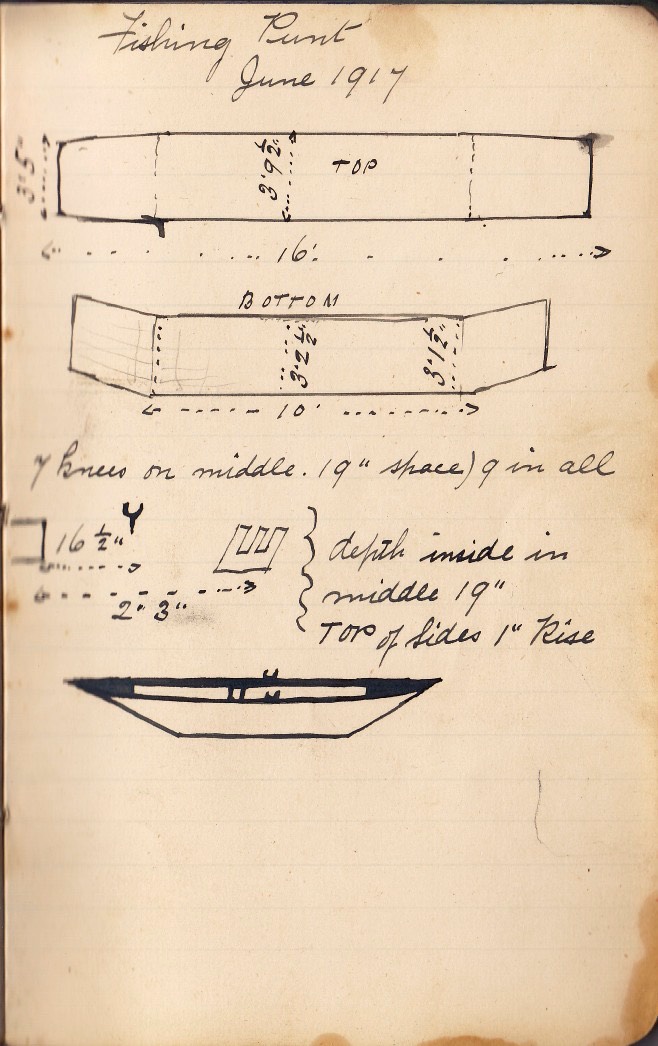 Fishing Punt
June 1917
3' 5"
3' 9 1/2"
TOP
16'
BOTTOM
3' 2 1/2"
3' 1 1/2"
10'
7 knees on middle. 19" space) 9 in all
16 1/2"
2' 3"
depth inside in
middle 19"
TOP of Sides 1" Rise